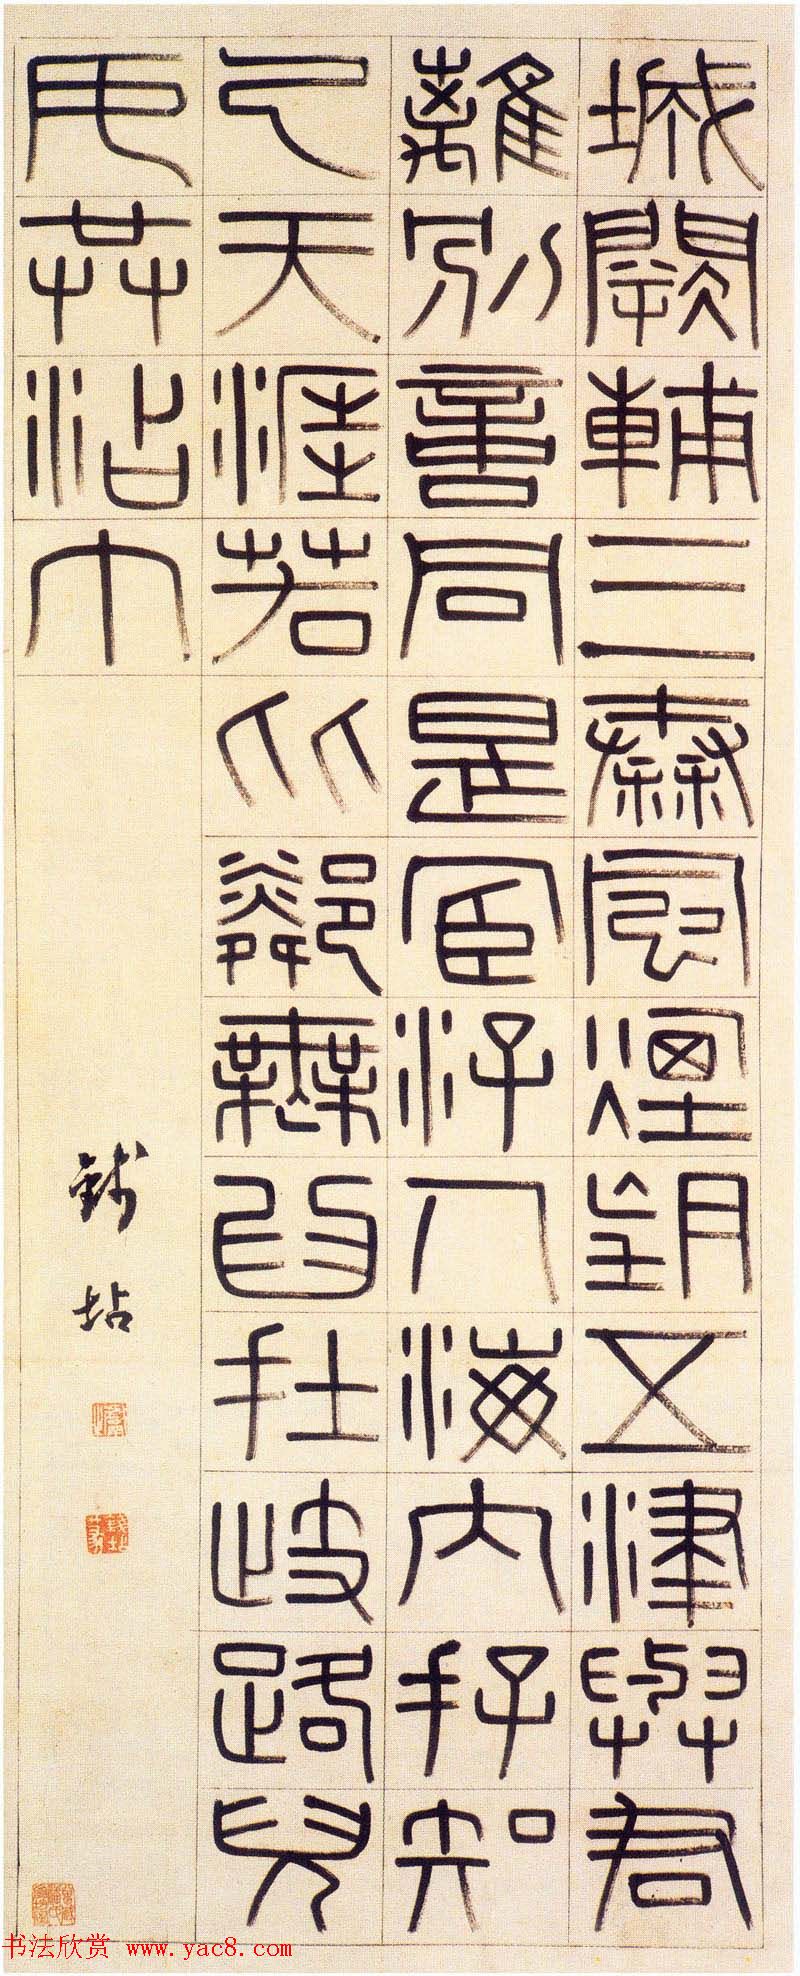 城闕輔三秦風煙望五津與君
離別意同是宦游人海內存知
己天涯若比鄰無為在岐路兒
女共沾巾
錢坫
书法欣赏 www.yac8.com